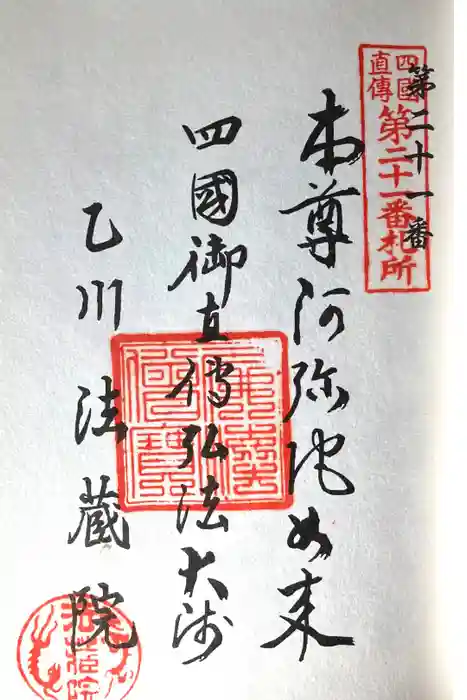 四國
直傳
第二十一番札所
第二十一番
本尊阿弥陀如来
四國御直傳弘法大師
乙川法蔵院